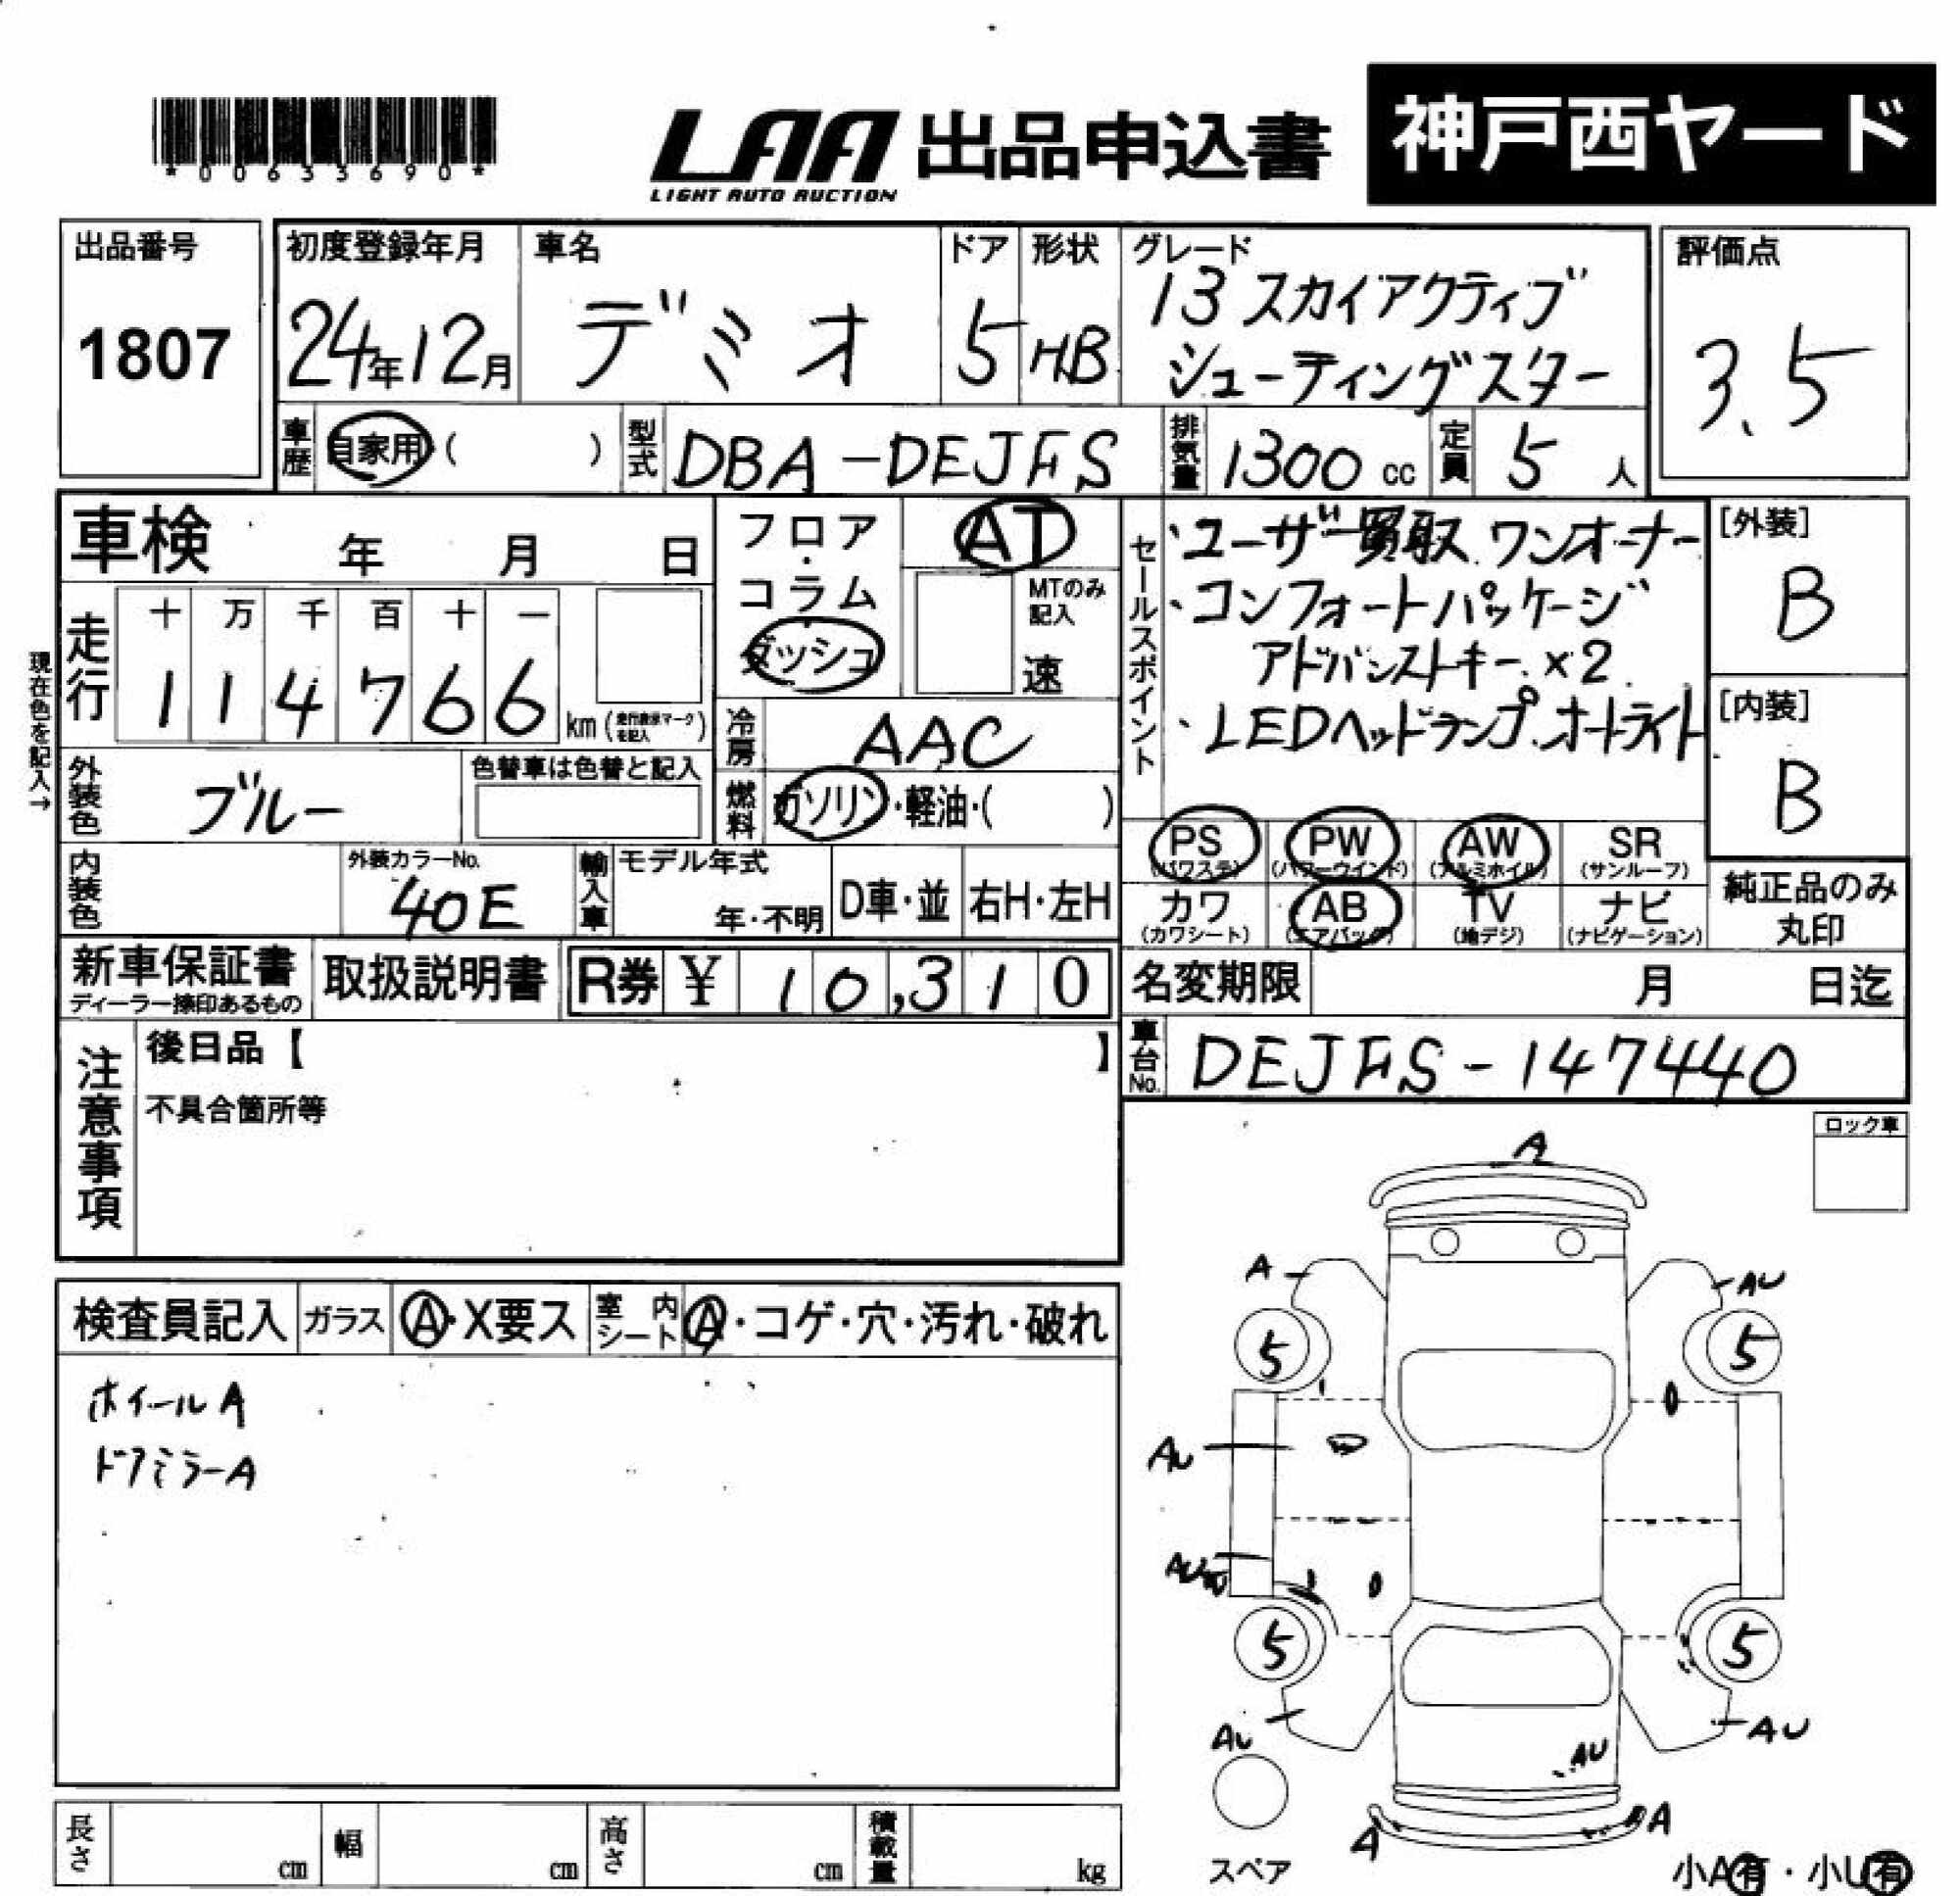 *00633690*
LAA 出品申込書
LIGHT AUTO AUCTION
神戸西ヤード
出品番号
1807
初度登録年月
24年12月
車名
デミオ
ドア
5
形状
HB
グレード
13 スカイアクティブ
シューティングスター
評価点
3.5
車歴
自家用 ( )
型式
DBA-DEJFS
排気量
1300 cc
定員
5 人
車検 年 月 日
現在色を記入→
走行
十 万 千 百 十 一
1 1 4 7 6 6
km (走行表示マークを記入)
フロア・コラム
ダッシュ
AT
MTのみ記入
速
冷房
AAC
燃料
ガソリン・軽油・( )
外装色
ブルー
色替車は色替と記入
内装色
外装カラーNo.
40E
輸入車
モデル年式
年・不明
D車・並
右H・左H
セールスポイント
・ユーザー買取 ワンオーナー
・コンフォートパッケージ
アドバンストキー ×2
・LEDヘッドランプ オートライト
[外装]
B
[内装]
B
PS PW AW SR
(パワステ) (パワーウインド) (アルミホイル) (サンルーフ)
カワ AB TV ナビ
(カワシート) (エアバック) (地デジ) (ナビゲーション)
純正品のみ
丸印
新車保証書
ディーラー捺印あるもの
取扱説明書
R券 ¥ 10,310
名変期限 月 日迄
車台No.
DEJFS-147440
注意事項
後日品【 】
不具合箇所等
ロック車
検査員記入
ガラス
A・X要ス
室内シート
A・コゲ・穴・汚れ・破れ
ホイールA
ドアミラーA
A
A
AU
5
5
AU
AU
5
5
AU
AU
AU
A
A
スペア
小A有・小U有
長さ cm
幅 cm
高さ cm
積載量 kg